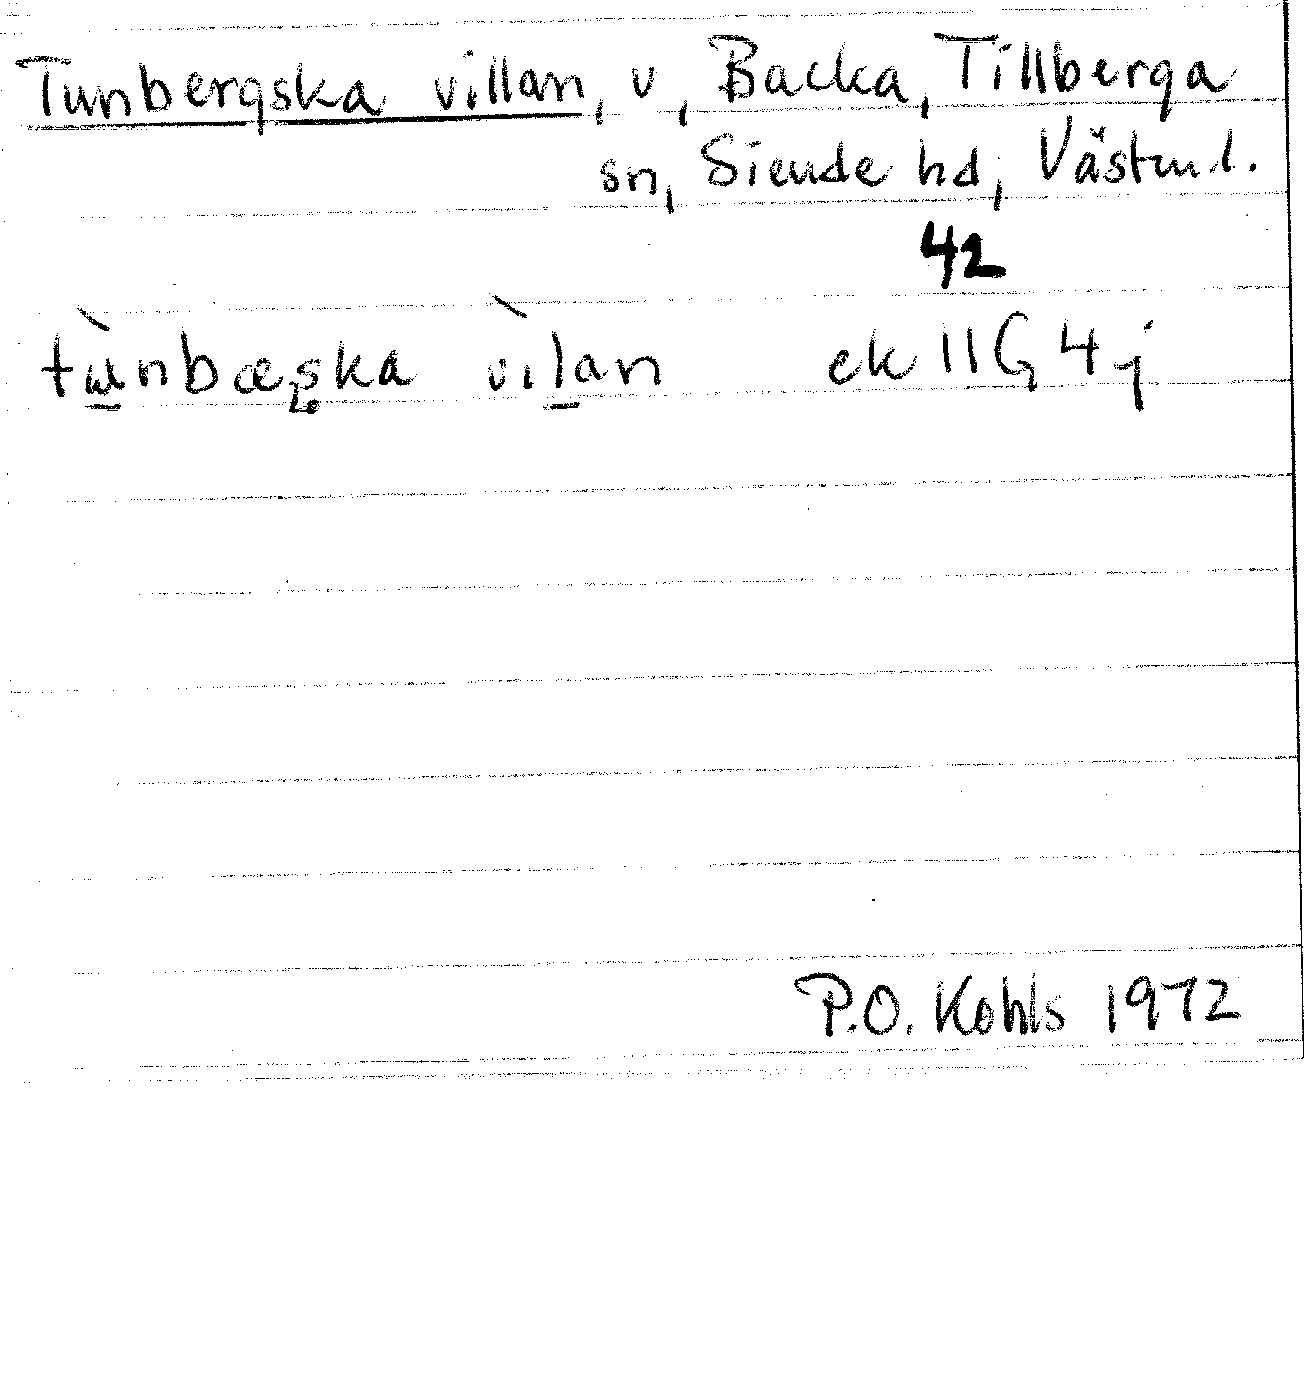 Tunbergska villan, v, Backa, Tillberga
sn, Siende hd, Västml.
42
tùnbæşka vìlan ek 11G 4j
P.O. Kohls 1972